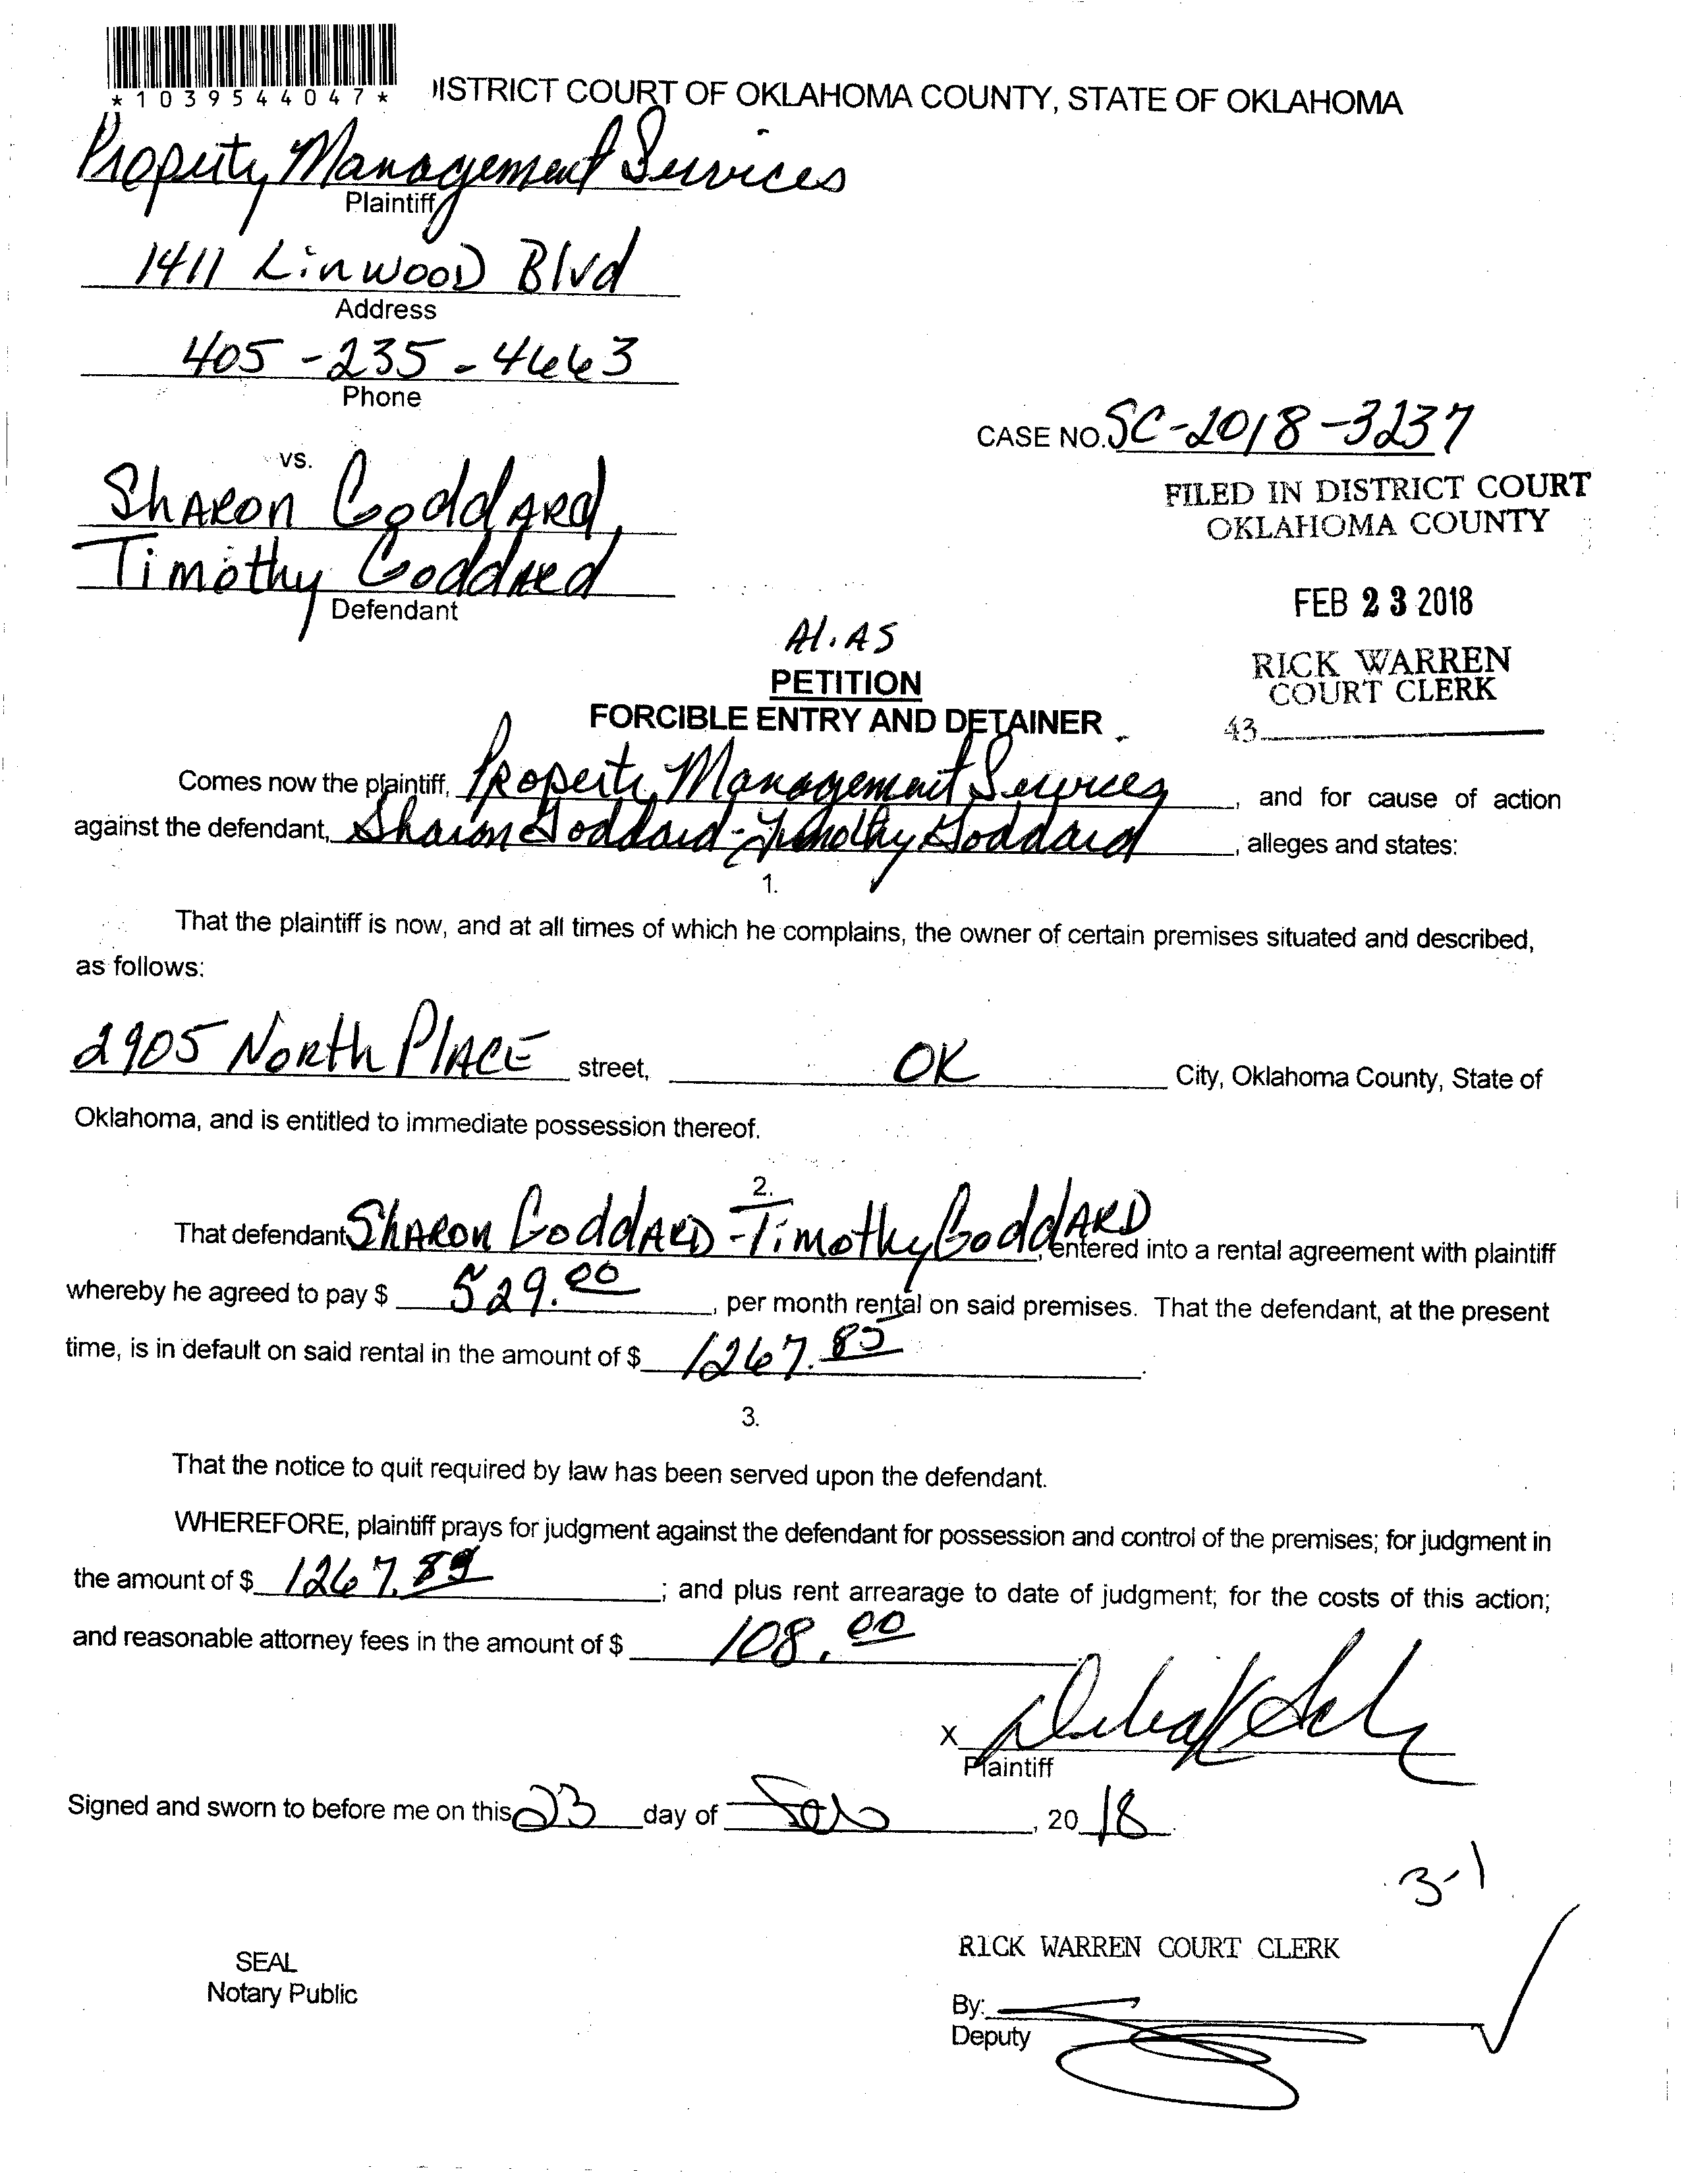 *1039544047*
ISTRICT COURT OF OKLAHOMA COUNTY, STATE OF OKLAHOMA
Property Management Services
Plaintiff
1411 Linwood Blvd
Address
405-235-4663
Phone
CASE NO. SC-2018-3237
vs.
FILED IN DISTRICT COURT
OKLAHOMA COUNTY
Sharon Goddard,
Timothy Goddard
Defendant
FEB 23 2018
Alias
RICK WARREN
COURT CLERK
PETITION
FORCIBLE ENTRY AND DETAINER
43
Comes now the plaintiff, Property Management Services, and for cause of action
against the defendant, Sharon Goddard-Timothy Goddard, alleges and states:
1.
That the plaintiff is now, and at all times of which he complains, the owner of certain premises situated and described,
as follows:
2905 North Place street, OK City, Oklahoma County, State of
Oklahoma, and is entitled to immediate possession thereof.
2.
That defendant Sharon Goddard-Timothy Goddard, entered into a rental agreement with plaintiff
whereby he agreed to pay $ 529.00, per month rental on said premises. That the defendant, at the present
time, is in default on said rental in the amount of $ 1267.85.
3.
That the notice to quit required by law has been served upon the defendant.
WHEREFORE, plaintiff prays for judgment against the defendant for possession and control of the premises; for judgment in
the amount of $ 1267.89; and plus rent arrearage to date of judgment; for the costs of this action;
and reasonable attorney fees in the amount of $ 108.00
X
Plaintiff
Signed and sworn to before me on this 23 day of Feb, 2018.
3-1
RICK WARREN COURT CLERK
SEAL
Notary Public
By:
Deputy